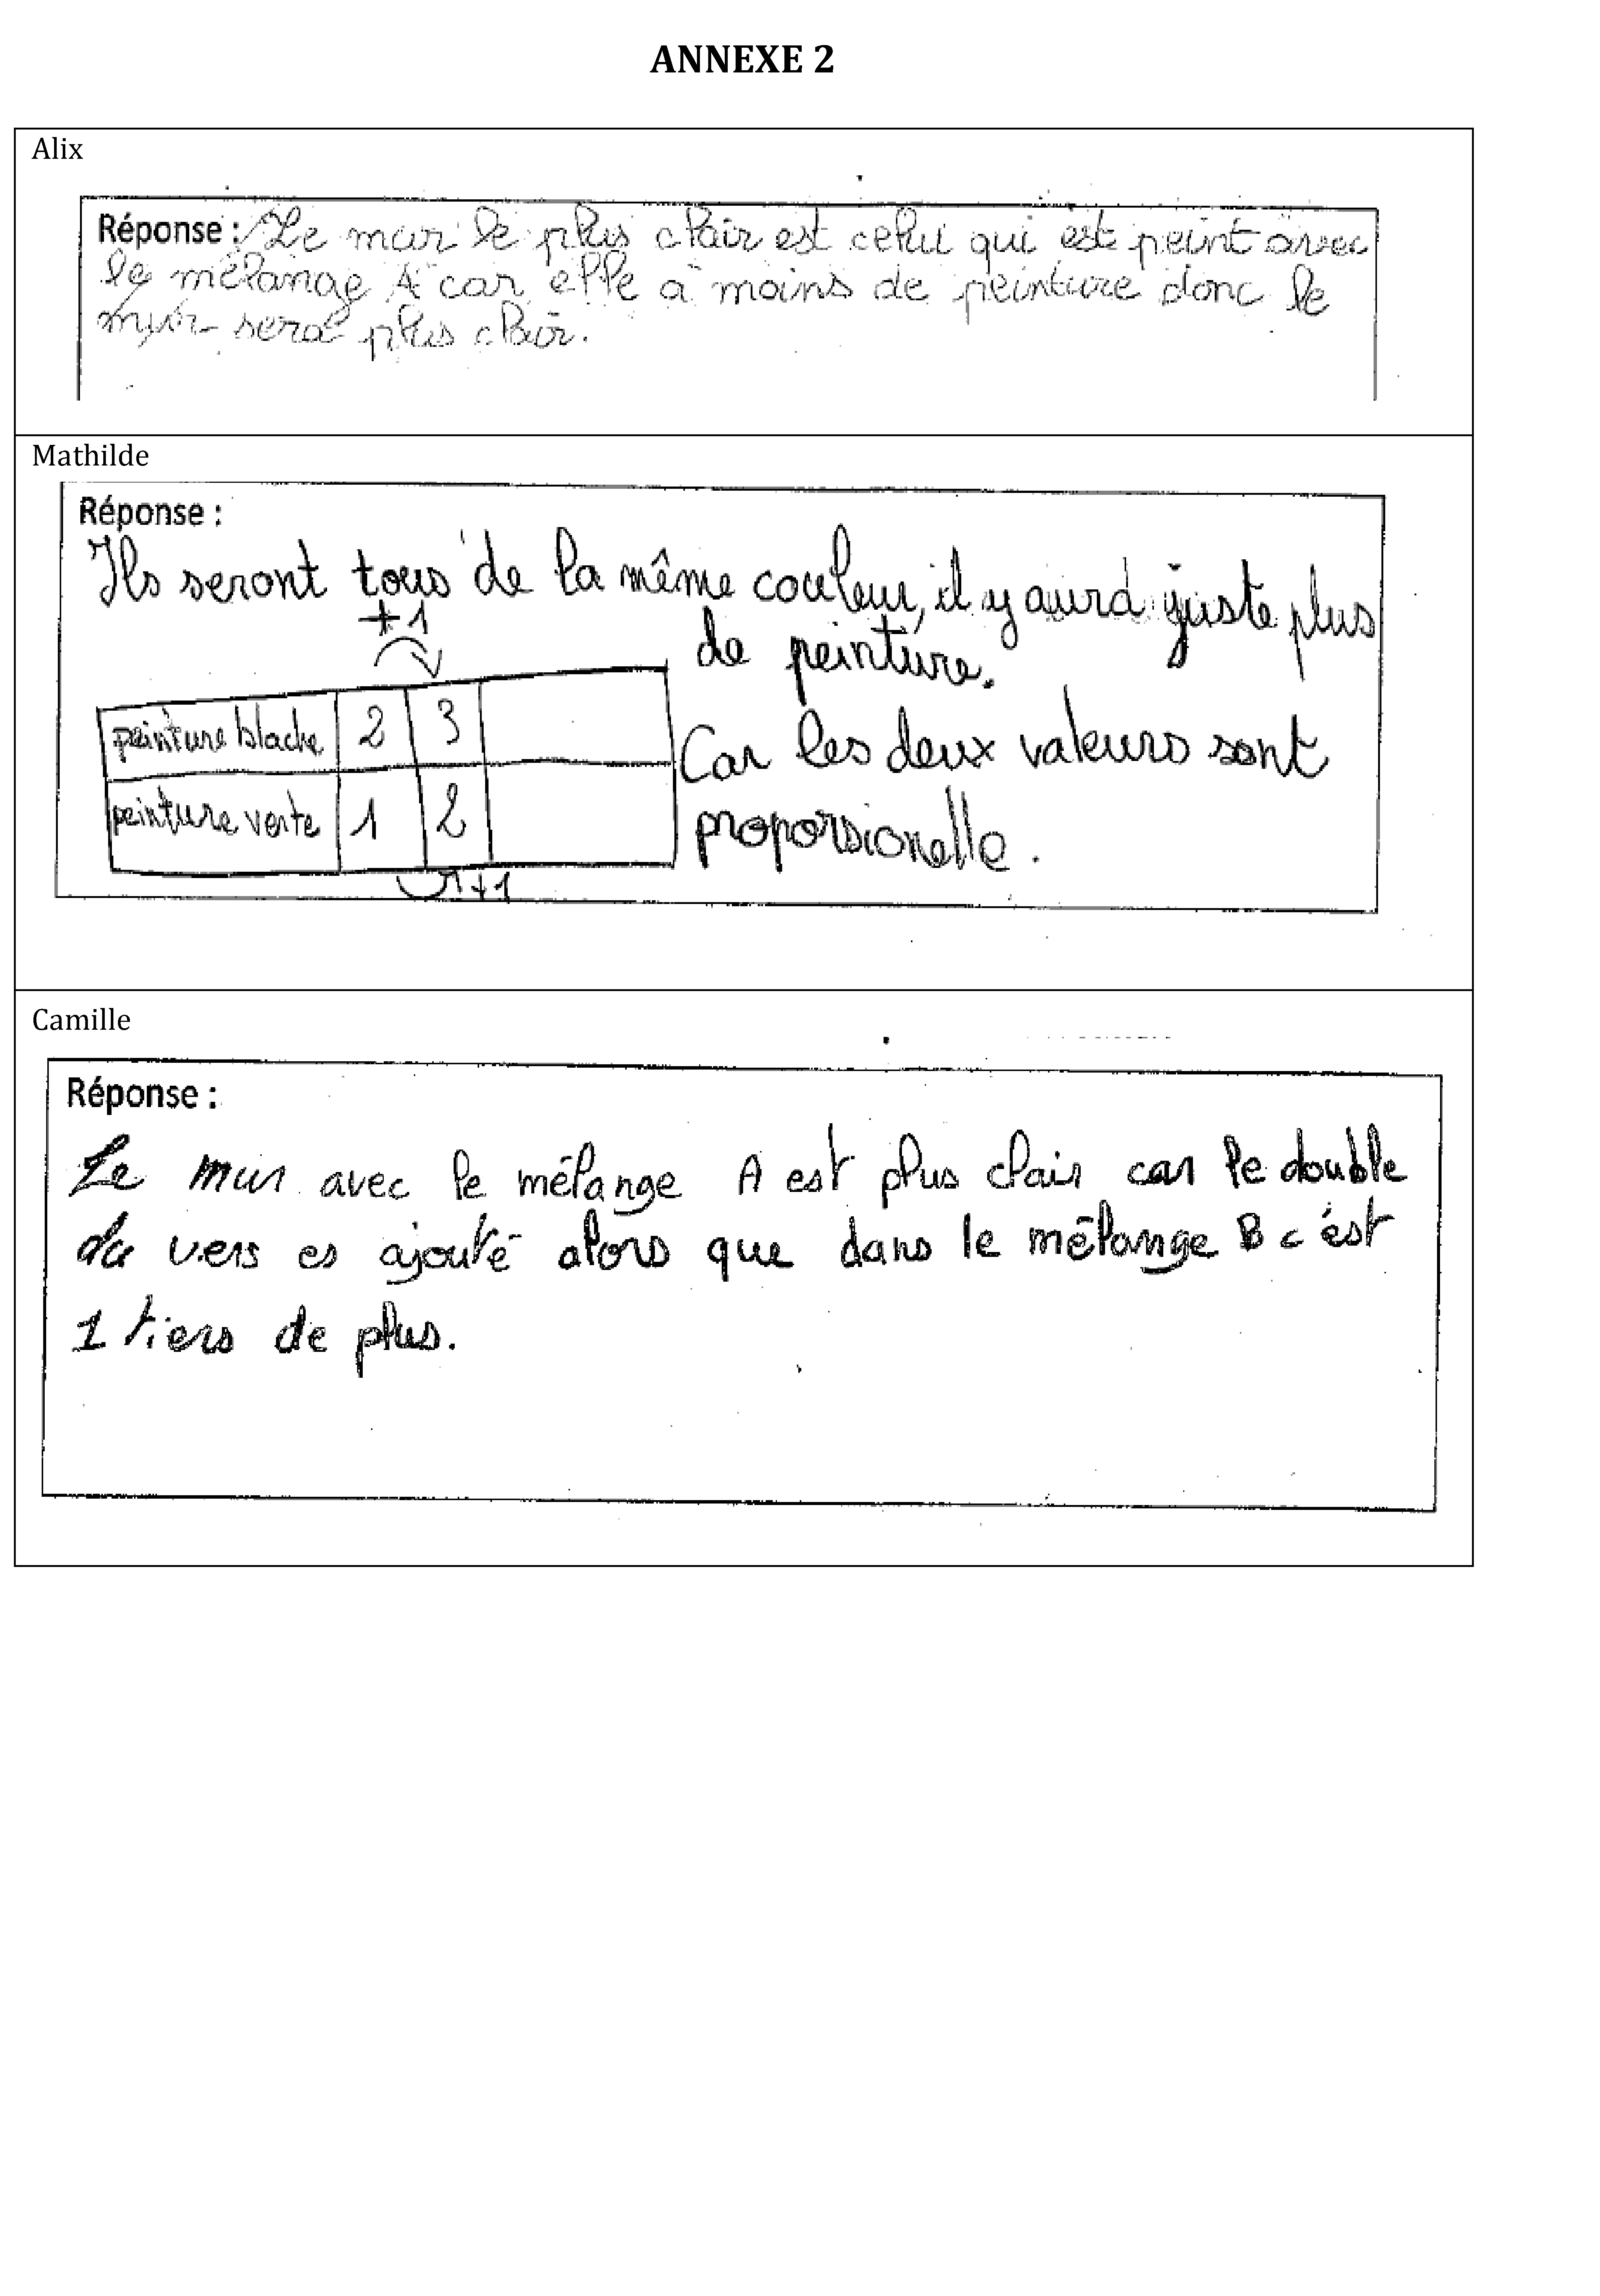 ANNEXE 2
Alix
Réponse : Le mur le plus clair est celui qui est peint avec
le mélange A car elle a moins de peinture donc le
mur sera plus clair.
Mathilde
Réponse :
Ils seront tous de la même couleur, il y aurd juste plus
de peinture.
+1
peinture blache 2 3
peinture verte 1 2
+1
Car les deux valeurs sont
proporsionelle.
Camille
Réponse :
Le mur avec le mélange A est plus clair car le double
du vers es ajouté alors que dans le mélange B c'est
1 tiers de plus.